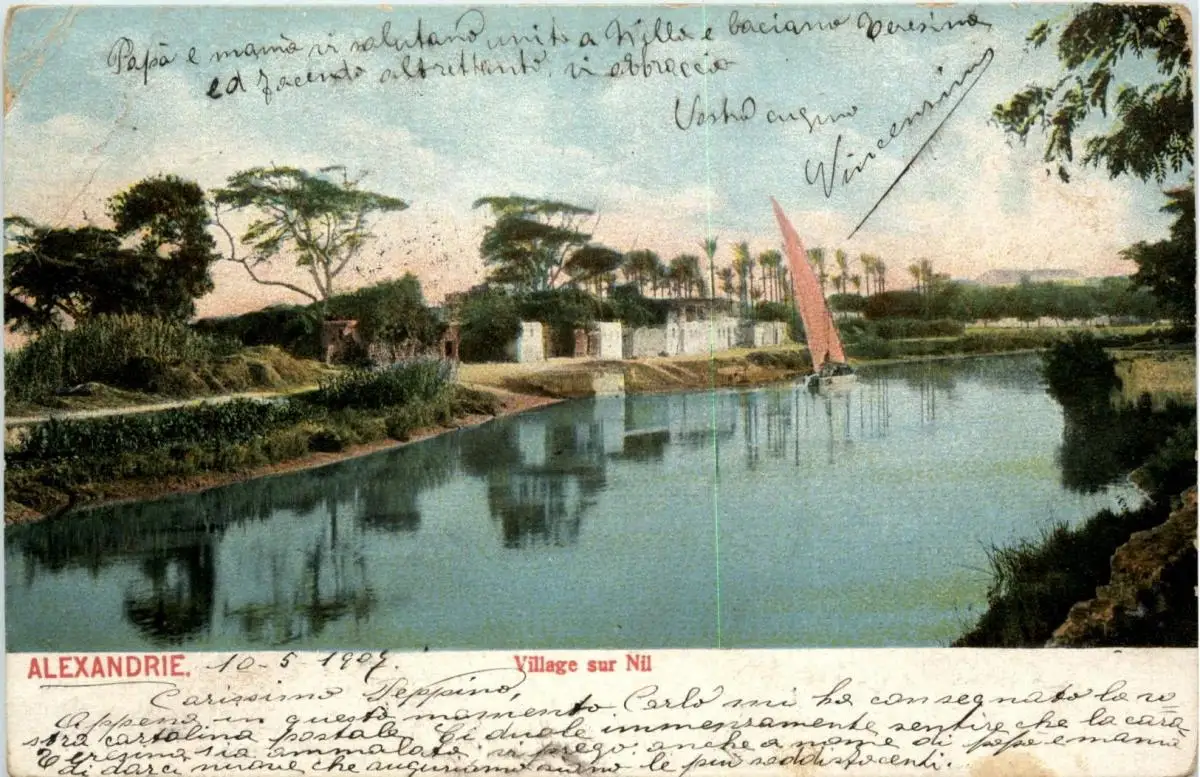 Papà e mamà vi salutano unito a Nilla e baciano Teresina
ed facendo altrettanto, vi abbraccio
Vostro cugino
Vincensino
ALEXANDRIE. 10-5 1907.
Village sur Nil
Carissimo Peppino,
Appena in questo momento Carlo mi ha consegnato la vo
stra cartolina postale. Ci duole immensamente sentire che la cara
Teresina sia ammalata, vi prego anche a nome di papà e mamà
di darci nuove che auguriamo siano le più soddisfacenti.